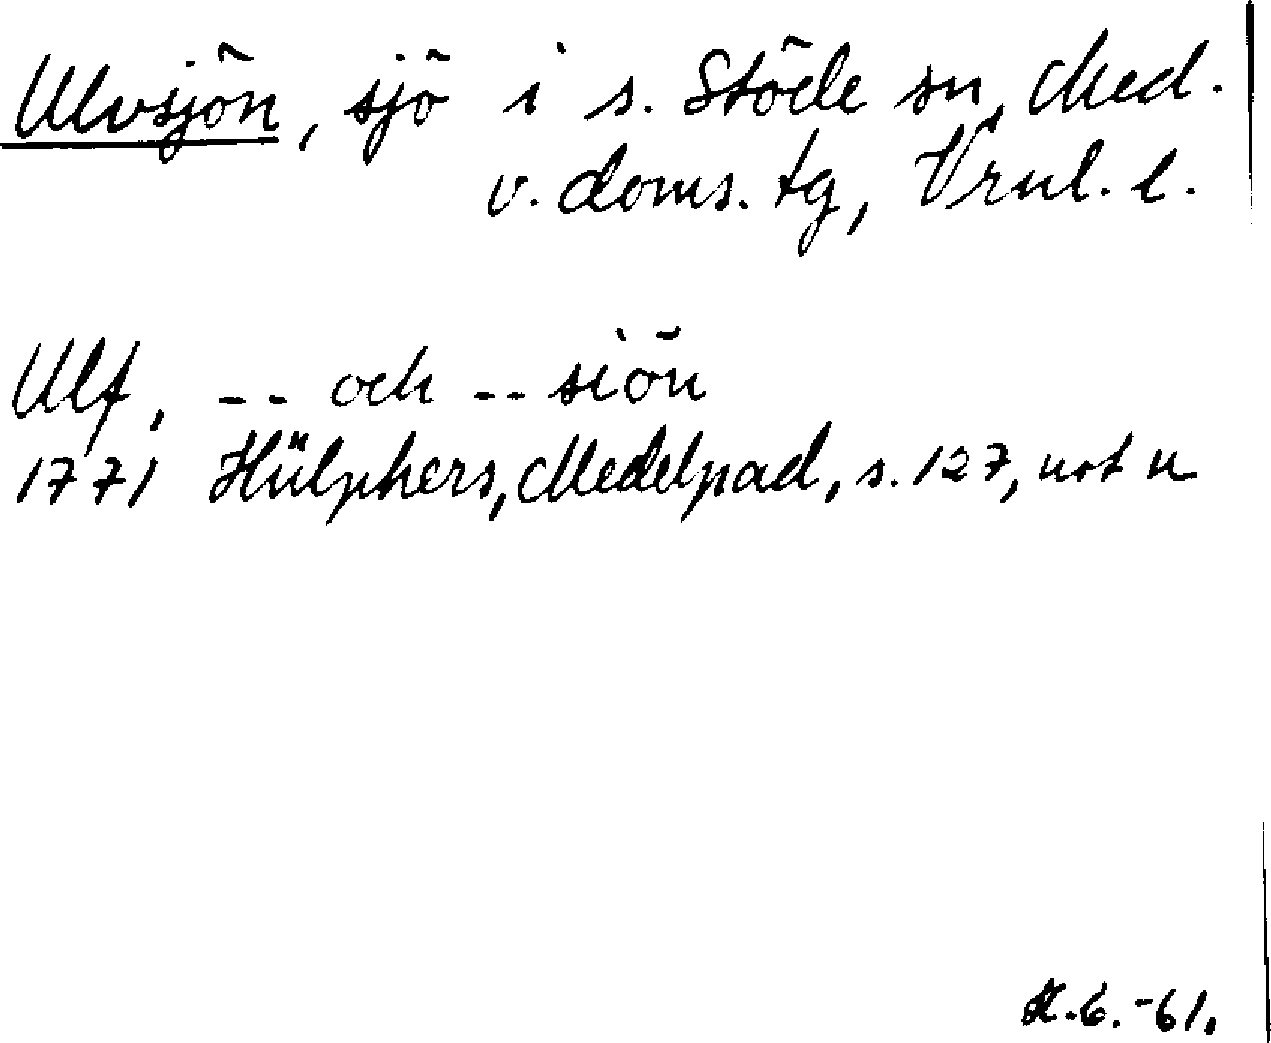 Ulvsjön, sjö i s. Stöde sn, Med.
v. doms. tg, Vrnl. l.
Ulf, -- och -- siön
1771 Hülphers, Medelpad, s. 127, not n
.6.-61.